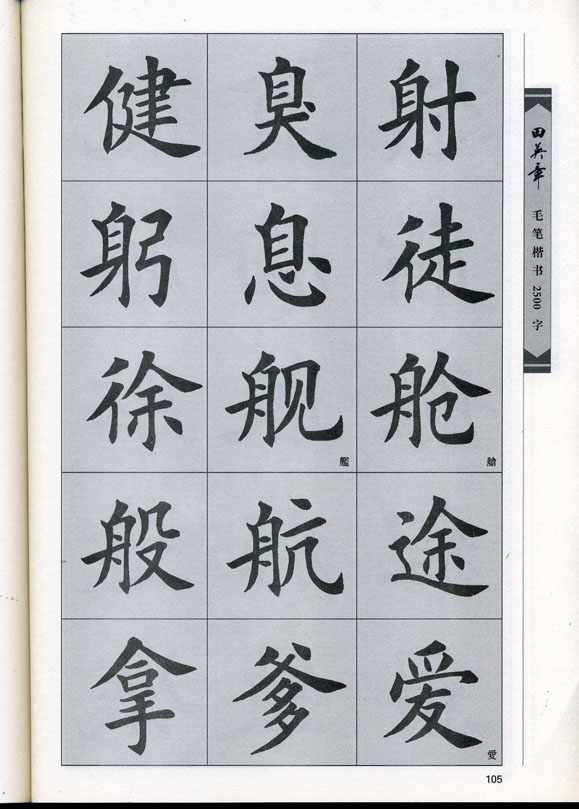 健 臭 射
躬 息 徒
徐 舰 舱
艦 艙
般 航 途
拿 爹 爱
愛
田英章
毛笔楷书2500字
105